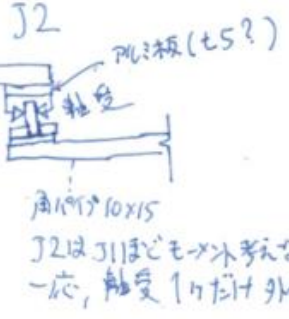 J2
アルミ板(t5?)
軸受
角パイプ10×15
J2はJ1ほどモーメント考えな
一応, 軸受1ケだけ外